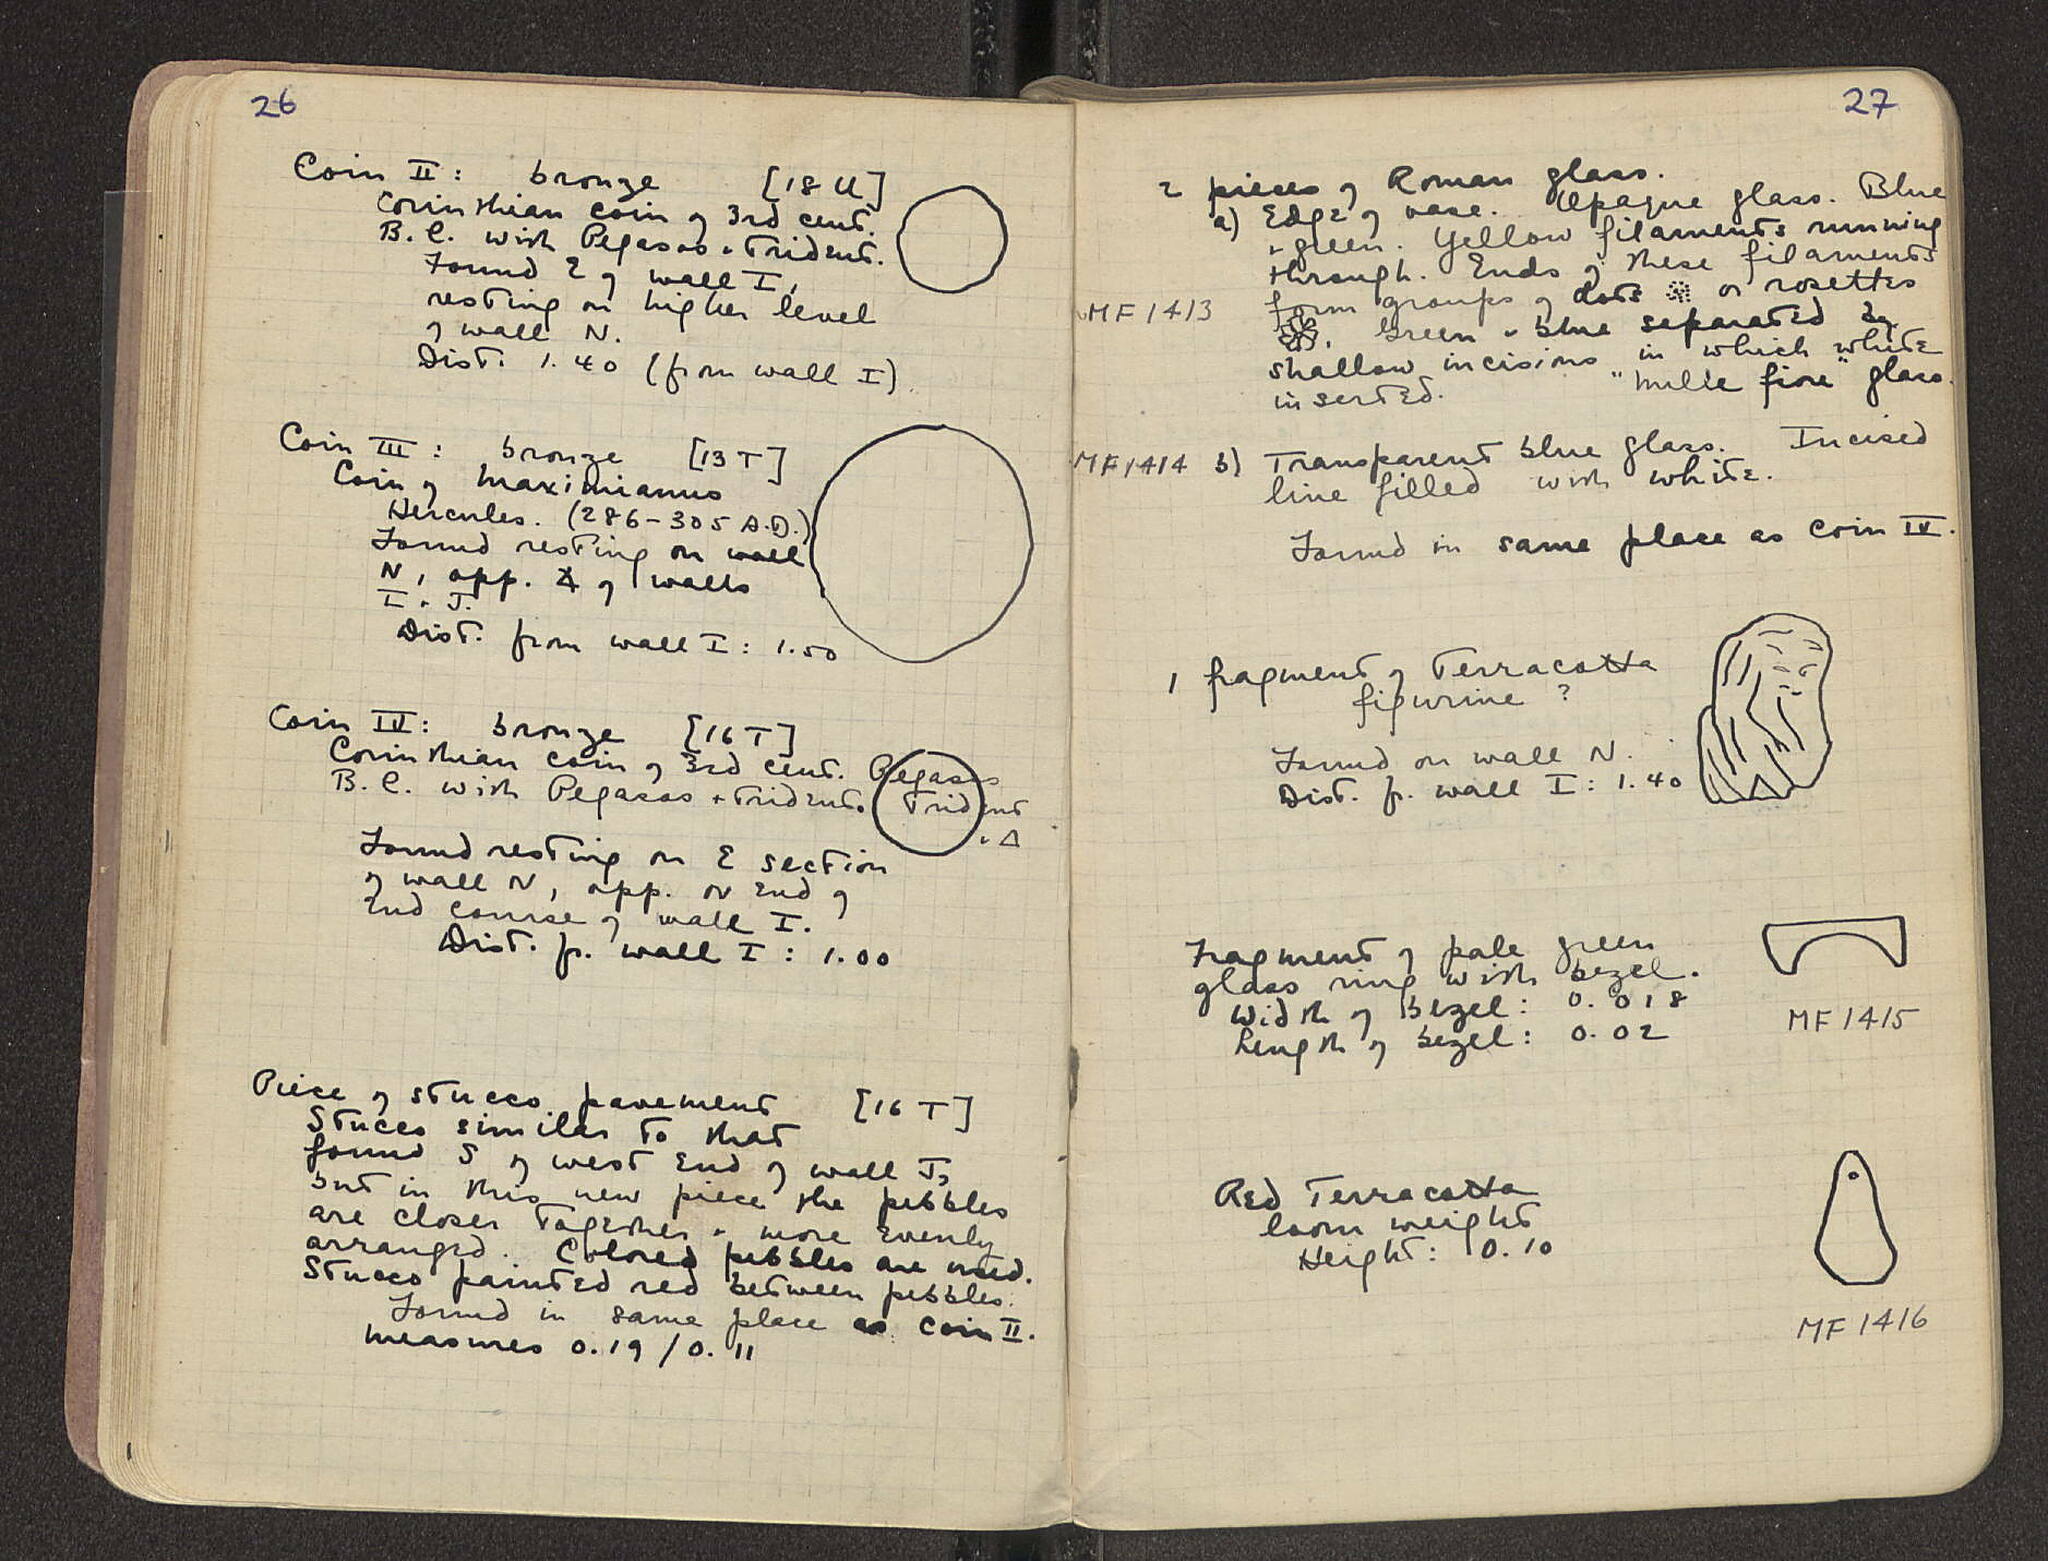 26
Coin II: bronze [18 U]
Corinthian coin of 3rd cent.
B.C. with Pegasos + Trident.
Found E of wall I,
resting on higher level
of wall N.
Dist. 1.40 (from wall I)
Coin III: bronze [13 T]
Coin of Maximianus
Hercules. (286-305 A.D.)
Found resting on wall
N, opp. ∡ of walls
I + J.
Dist. from wall I: 1.50
Coin IV: bronze [16 T]
Corinthian coin of 3rd cent. Pegasos
B.C. with Pegasos + Trident. Trident
+ Δ
Found resting on E section
of wall N, opp. N end of
2nd course of wall I.
Dist. fr. wall I: 1.00
Piece of stucco pavement [16 T]
Stucco similar to that
found S of west end of wall J,
but in this new piece the pebbles
are closer together + more evenly
arranged. Colored pebbles are used.
Stucco painted red between pebbles.
Found in same place as coin II.
Measures 0.19 / 0.11
27
2 pieces of Roman glass.
a) Edge of vase. Opaque glass. Blue
+ green. Yellow filaments running
through. Ends of these filaments
MF 1413 form groups of dots or rosettes
. Green + blue separated by
shallow incisions in which white
inserted. "mille fiore" glass.
MF 1414 b) Transparent blue glass. Incised
line filled with white.
Found in same place as coin IV.
1 fragment of Terracotta
figurine?
Found on wall N.
Dist. fr. wall I: 1.40
Fragment of pale green
glass ring with bezel.
Width of Bezel: 0.018
Length of bezel: 0.02
MF 1415
Red Terracotta
loom weight
Height: 0.10
MF 1416